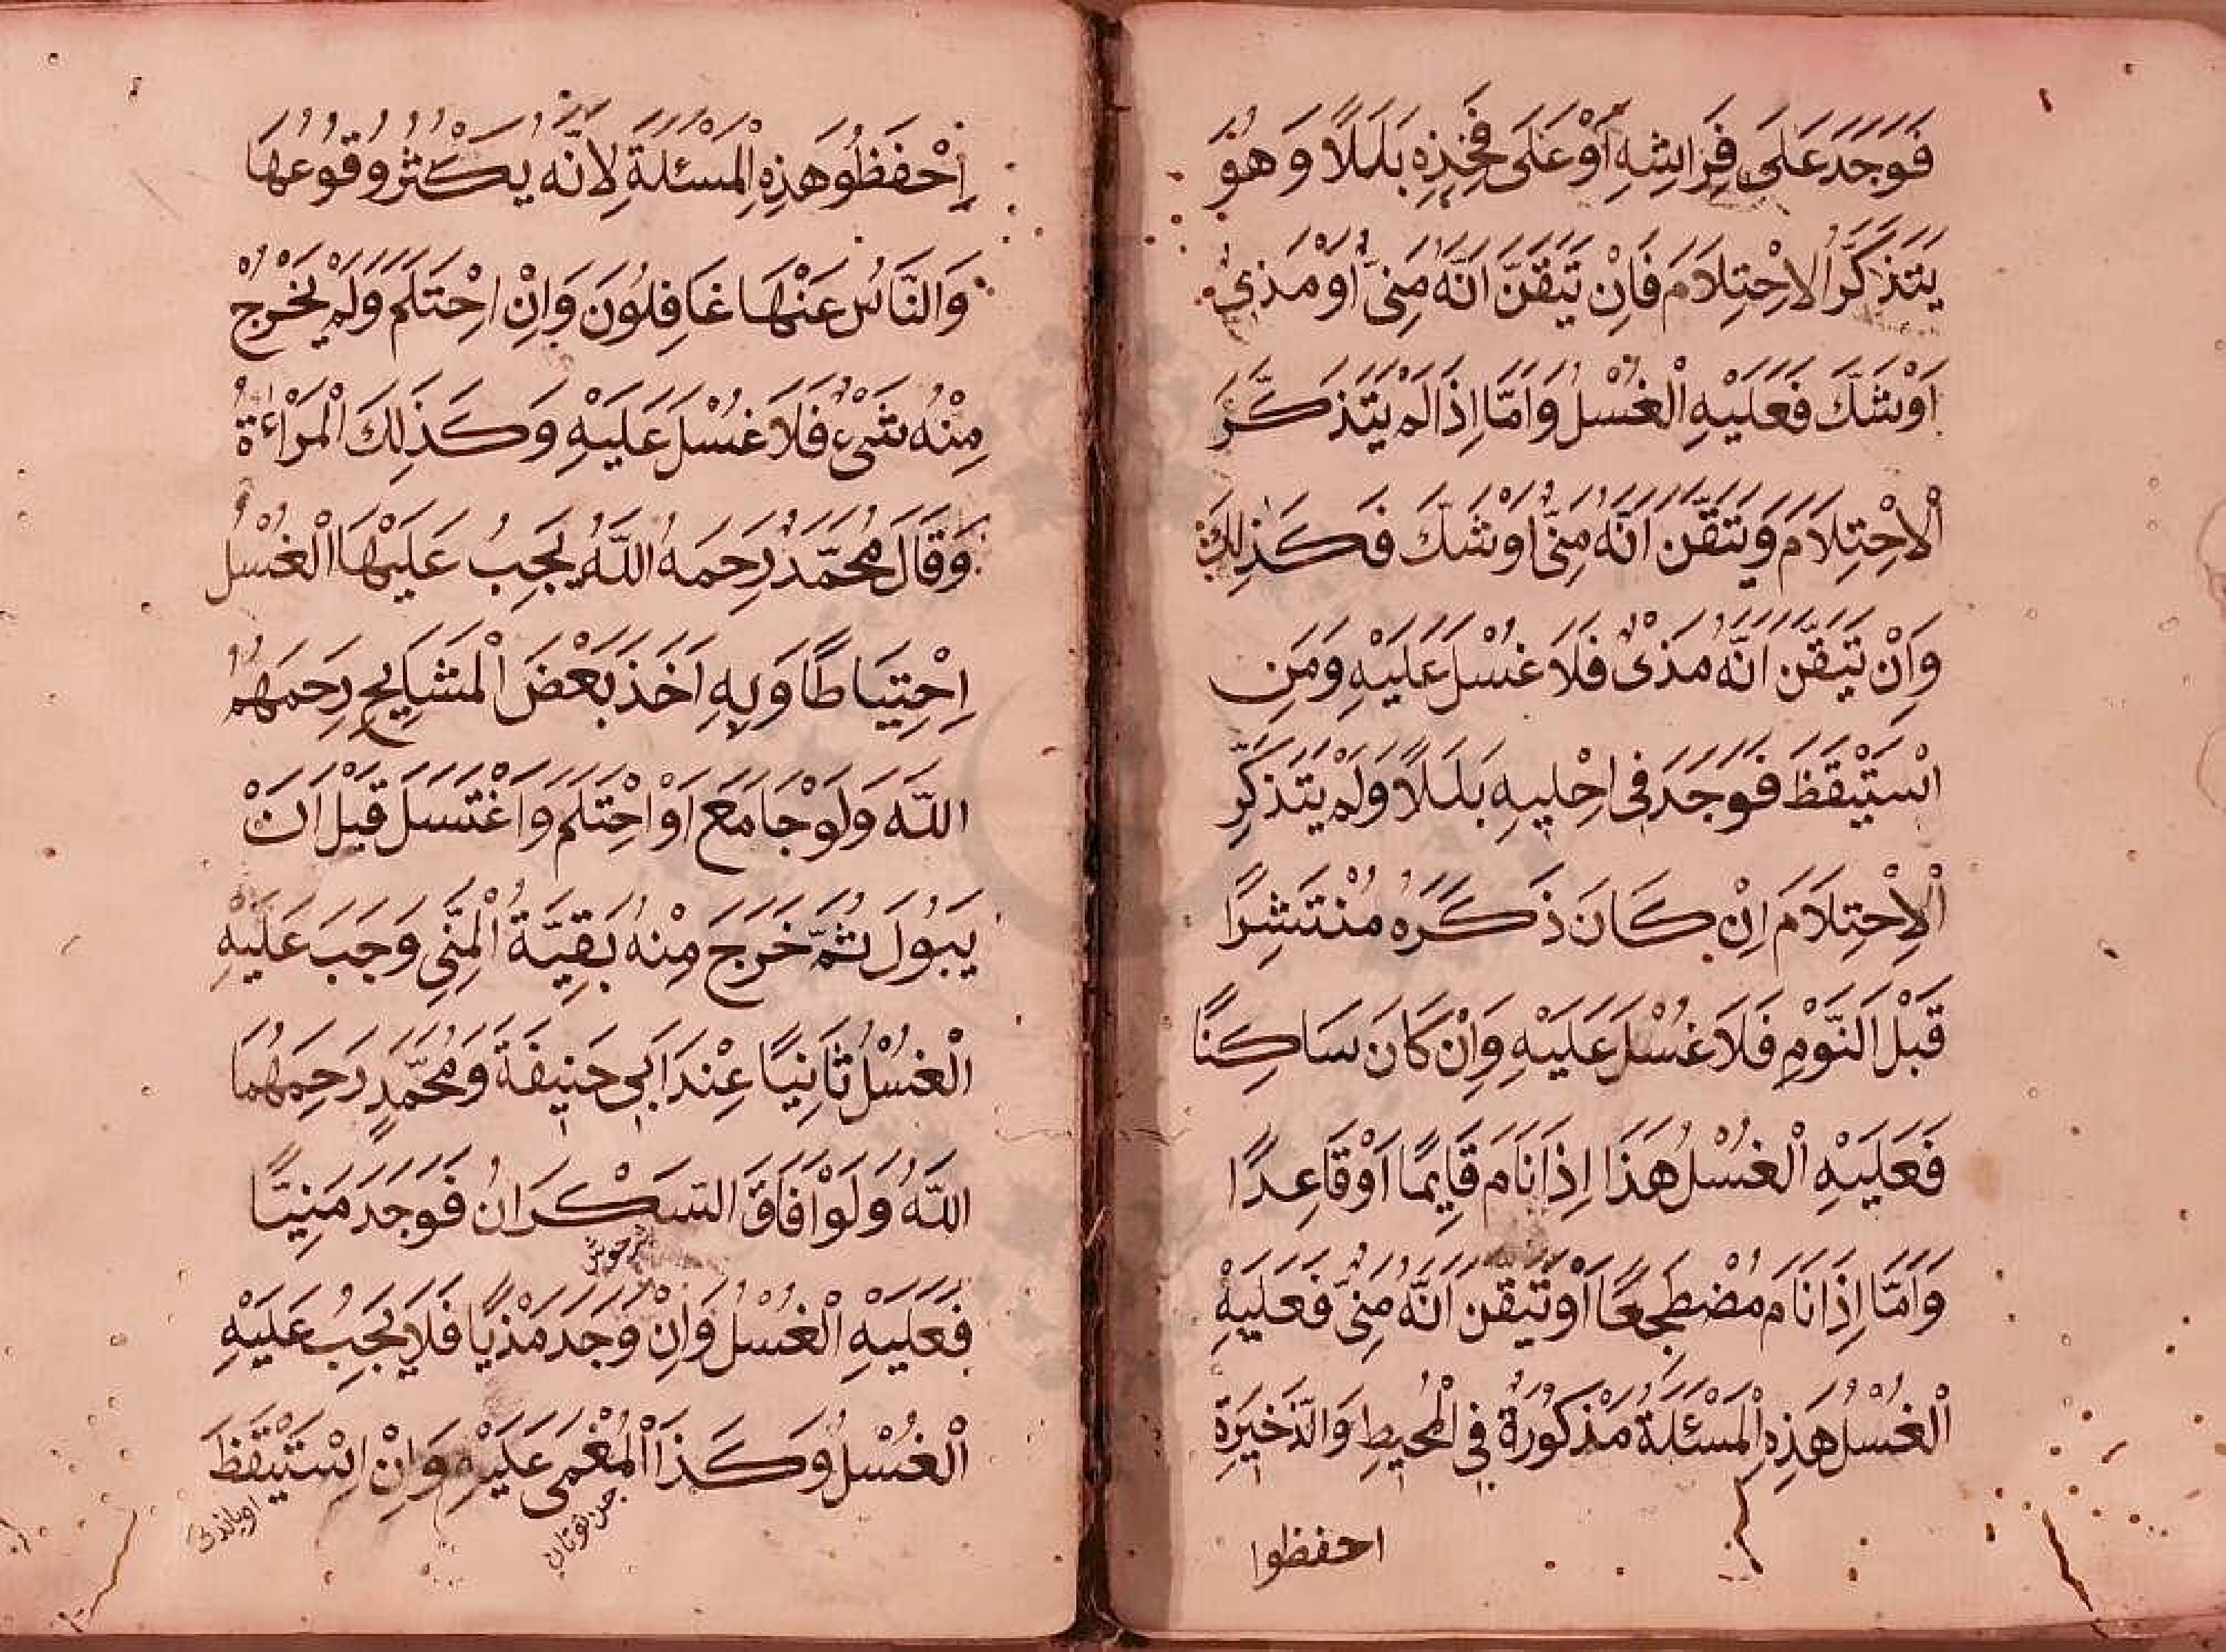 فَوَجَدَ عَلَى فِرَاشِهِ أَوْ عَلَى فَخِذِهِ بَلَلًا وَهُوَ
يَتَذَكَّرُ الاِحْتِلَامَ فَاِنْ تَيَقَّنَ اَنَّهُ مَنِىٌّ اَوْ مَذِيٌ
اَوْ شَكَّ فَعَلَيْهِ الْغُسْلُ وَاَمَّا اِذَا لَمْ يَتَذَكَّرْ
الْاِحْتِلَامَ وَتَيَقَّنَ اَنَّهُ مَنِىٌّ اَوْ شَكَّ فَكَذَلِكَ
وَاِنْ تَيَقَّنَ اَنَّهُ مَذْىٌ فَلَا غُسْلَ عَلَيْهِ وَمَنِ
اسْتَيْقَظَ فَوَجَدَ فِى اِحْلِيلِهِ بَلَلًا وَلَمْ يَتَذَكَّرِ
الْاِحْتِلَامَ اِنْ كَانَ ذَكَرُهُ مُنْتَشِرًا
قَبْلَ النَّوْمِ فَلَا غُسْلَ عَلَيْهِ وَاِنْ كَانَ سَاكِنًا
فَعَلَيْهِ الْغُسْلُ هَذَا اِذَا نَامَ قَايِمًا اَوْ قَاعِدًا
وَاَمَّا اِذَا نَامَ مُضْطَجِعًا اَوْ تَيَقَّنَ اَنَّهُ مَنِىٌّ فَعَلَيْهِ
الْغُسْلُ هَذِهِ الْمَسْئَلَةُ مَذْكُورَةٌ فِي الْمُحِيطِ وَالذَّخِيرَةِ
احفظوا
اِحْفَظُو هَذِهِ الْمَسْئَلَةَ لِاَنَّهُ يَكْثُرُ وُقُوعُهَا
وَالنَّاسُ عَنْهَا غَافِلُونَ وَاِنْ اِحْتَلَمَ وَلَمْ يَخْرُجْ
مِنْهُ شَىْءٌ فَلَا غُسْلَ عَلَيْهِ وَكَذَلِكَ الْمَرْاَءَةُ
وَقَالَ مُحَمَّدٌ رَحِمَهُ اللَّهُ يَجِبُ عَلَيْهَا الْغُسْلُ
اِحْتِيَاطًا وَبِهِ اَخَذَ بَعْضَ الْمَشَايِخِ رَحِمَهُمُ
اللَّه وَلَوْ جَامَعَ اَوْ احْتَلَمَ وَاغْتَسَلَ قَبْلَ اَنْ
يَبُولَ ثُمَّ خَرَجَ مِنْهُ بَقِيَّةُ الْمَنِّيِ وَجَبَ عَلَيْهِ
الْغُسْلُ ثَانِيًا عِنْدَ اَبِي حَنِيفَةَ وَمُحَمَّدٍ رَحِمَهُمَا
اللَّهُ وَلَوْ اَفَاقَ السَّكْرَانُ فَوَجَدَ مَنِيًّا
فَعَلَيْهِ الْغُسْلُ وَاِنْ وَجَدَ مَذْيًا فَلَا يَجِبُ عَلَيْهِ
الْغُسْلُ وَكَذَا الْمُغْمَى عَلَيْهِ وَاِنْ اِسْتَيْقَظَ